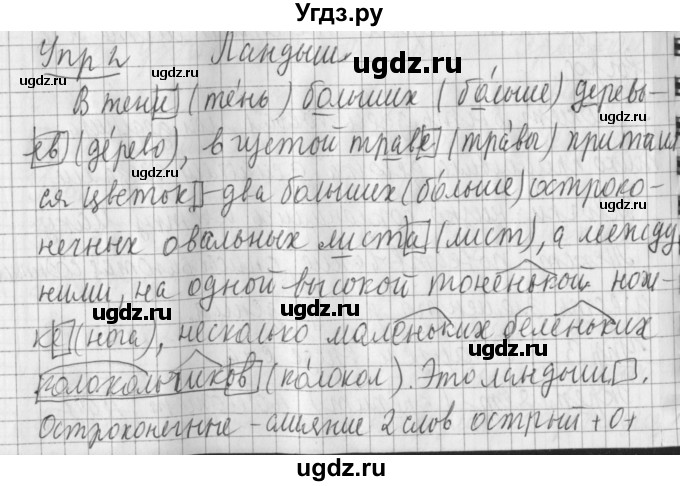 Угдз.ру
Упр 2 Ландыш
В тени (тень) больших (больше) деревь-
ев (дерево), в густой траве (травы) притаил
ся цветок - два больших (больше) остроко-
нечных овальных листа (лист), а между
ними, на одной высокой тоненькой нож-
ке (нога), несколько маленьких беленьких
колокольчиков (колокол). Это ландыш.
Остроконечные - слияние 2 слов острый + О +
ugdz.ru
ugdz.ru
ugdz.ru
ugdz.ru
ugdz.ru
ugdz.ru
ugdz.ru
ugdz.ru
ugdz.ru
ugdz.ru
ugdz.ru
ugdz.ru